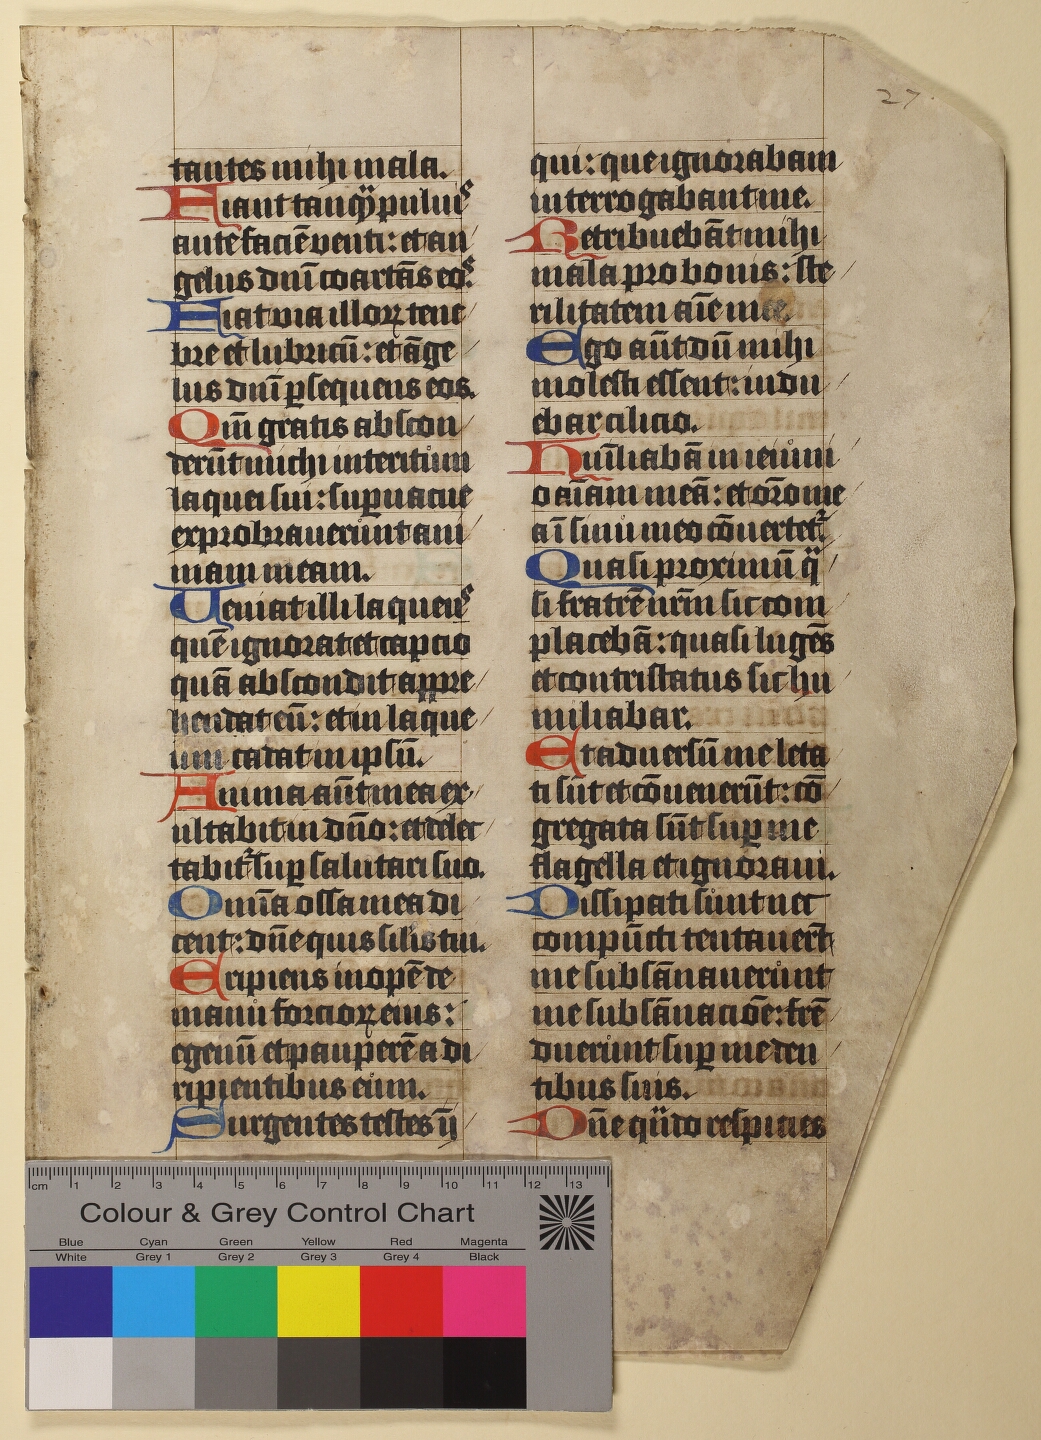 27
tantes michi mala.
Fiant tanqͣ puluiꝰ
ante faciē venti: et an
gelus dnī coartās eoꝰ.
Fiat via illoꝝ tene
bre et lubricū: et āge
lus dnī ꝑsequens eos.
Qm̄ gratis abscon
derūt michi interitum
laquei sui: suꝑuacue
exprobrauerunt ani
mam meam.
Veniat illi laqueuꝰ
quē ignorat et captio
quā abscondit appre
hendat eū: et in laque
um cadat in ipsū.
Anima aūt mea ex
ultabit in dn̄o: et delec
tabit᷑ suꝑ salutari suo.
Omīa ossa mea di
cent: dn̄e quis silis tui.
Eripiens inopē de
manu forcioꝝ eius:
egenū et pauperē a di
ripientibus eum.
Surgentes testes īi
qui: que ignorabam
interrogabant me.
Retribuebāt mihi
mala pro bonis: ste
rilitatem aīe mee.
Ego aūt dū mihi
molesti essent: indu
ebar cilicio.
Humiliabā in ieiuni
o aīam meā: et or̄o me
a ī sinu meo cōuertet᷑
Quasi proximū qͣ
si fratrē nr̄m sic com
placebā: quasi lugēs
et contristatus sic hu
miliabar.
Et aduersū me leta
ti sūt et cōuenerūt: cō
gregata sūt suꝑ me
flagella et ignoraui.
Dissipati sunt nec
compūcti tentauer̄t
me subsānauerunt
me subsānacioē: frē
duerunt suꝑ me den
tibus suis.
Dn̄e qn̄do respicies
cm 1 2 3 4 5 6 7 8 9 10 11 12 13
Colour & Grey Control Chart
Blue Cyan Green Yellow Red Magenta
White Grey 1 Grey 2 Grey 3 Grey 4 Black